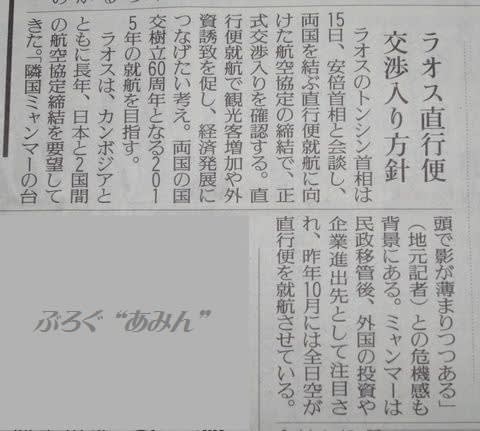 ラオス直行便
交渉入り方針
ラオスのトンシン首相は
15日、安倍首相と会談し、
両国を結ぶ直行便就航に向
けた航空協定の締結で、正
式交渉入りを確認する。直
行便就航で観光客増加や外
資誘致を促し、経済発展に
つなげたい考え。両国の国
交樹立60周年となる201
5年の就航を目指す。
ラオスは、カンボジアと
ともに長年、日本と2国間
の航空協定締結を要望して
きた。「隣国ミャンマーの台
頭で影が薄まりつつある」
(地元記者)との危機感も
背景にある。ミャンマーは
民政移管後、外国の投資や
企業進出先として注目さ
れ、昨年10月には全日空が
直行便を就航させている。
ぶろぐ“あみん”